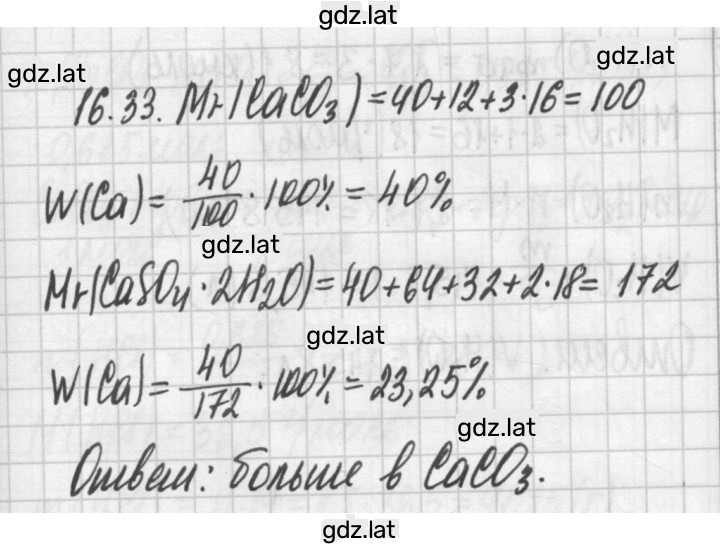 gdz.lat
gdz.lat
gdz.lat
16.33. Mr(CaCO₃) = 40+12+3·16 = 100
W(Ca) = 40/100 · 100% = 40%
gdz.lat
Mr(CaSO₄ · 2H₂O) = 40+64+32+2·18 = 172
gdz.lat
W(Ca) = 40/172 · 100% = 23,25%
gdz.lat
Ответ: больше в CaCO₃.
gdz.lat